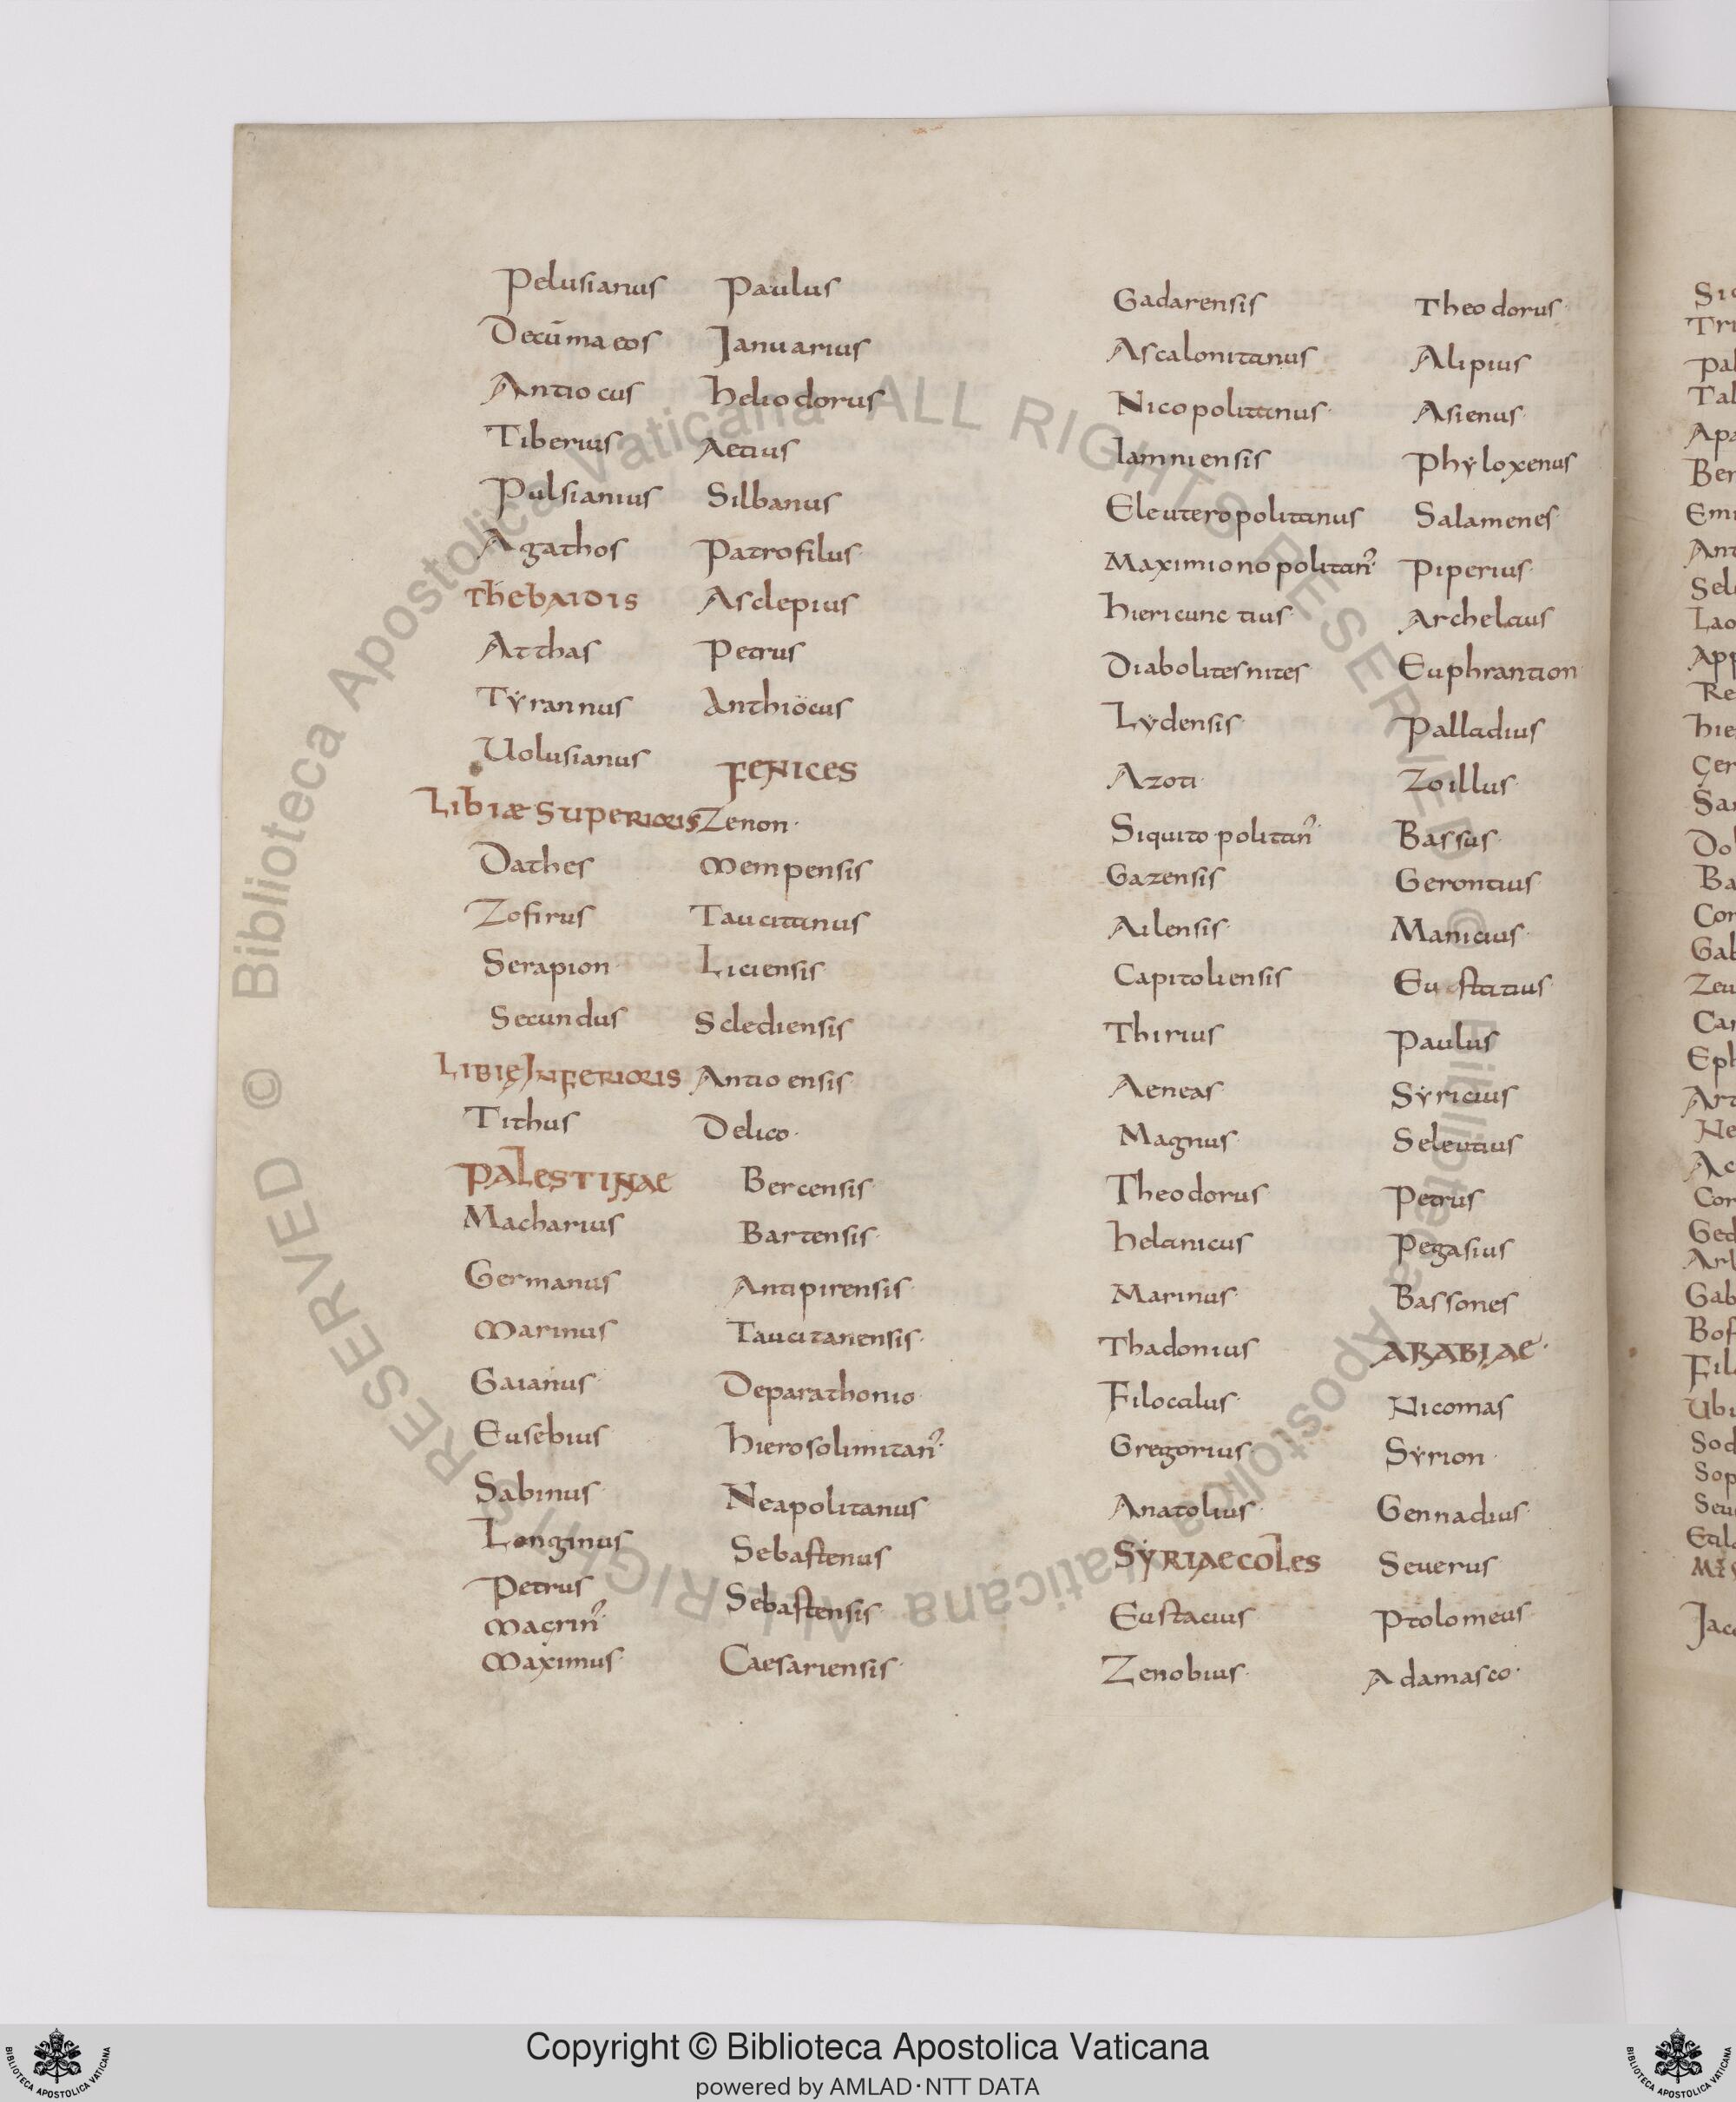 Pelusianus
Decūmaeos
Antiocus
Tiberius
Pulsianius
Agathos
Thebaidis
Atthas
Tyrannus
Uolusianus
Libiæ Superioris
Dathes
Zofirus
Serapion
Secundus
Libię Inferioris
Tithus
Palestinae
Macharius
Germanus
Marinus
Gaianus
Eusebius
Sabinus
Longinus
Petrus
Macrin
Maximus
Paulus
Januarius
heliodorus
Aetius
Silbanus
Patrofilus
Asclepius
Petrus
Anthiocus
Fenices
Zenon
Mempensis
Taucitanus
Liciensis
Sclediensis
Antioensis
Delico
Bercensis
Bartensis
Antipirensis
Taucitanensis
Deparathonio
hierosolimitan
Neapolitanus
Sebastenus
Sebastensis
Caesariensis
Gadarensis
Ascalonitanus
Nicopolitanus
Iamniensis
Eleuteropolitanus
Maximionopolitan
hiericunctius
Diabolitesnites
Lydensis
Azoti
Siquitopolitan
Gazensis
Ailensis
Capitoliensis
Thirius
Aeneas
Magnus
Theodorus
helanicus
Marinus
Thadonius
Filocalus
Gregorius
Anatolius
Syriae coles
Eustacius
Zenobius
Theodorus
Alipius
Asienus
Phyloxenus
Salamenes
Piperius
Archelaus
Euphrantion
Palladius
Zoillus
Bassus
Gerontius
Manicius
Eustatius
Paulus
Syricius
Seleutius
Petrus
Pegasius
Bassones
Arabiae
Nicomas
Syrion
Gennadius
Seuerus
Ptolomeus
Adamasco
© Biblioteca Apostolica Vaticana ALL RIGHTS RESERVED
© Biblioteca Apostolica Vaticana ALL RIGHTS RESERVED
Copyright © Biblioteca Apostolica Vaticana
powered by AMLAD·NTT DATA
BIBLIOTECA APOSTOLICA VATICANA
BIBLIOTECA APOSTOLICA VATICANA